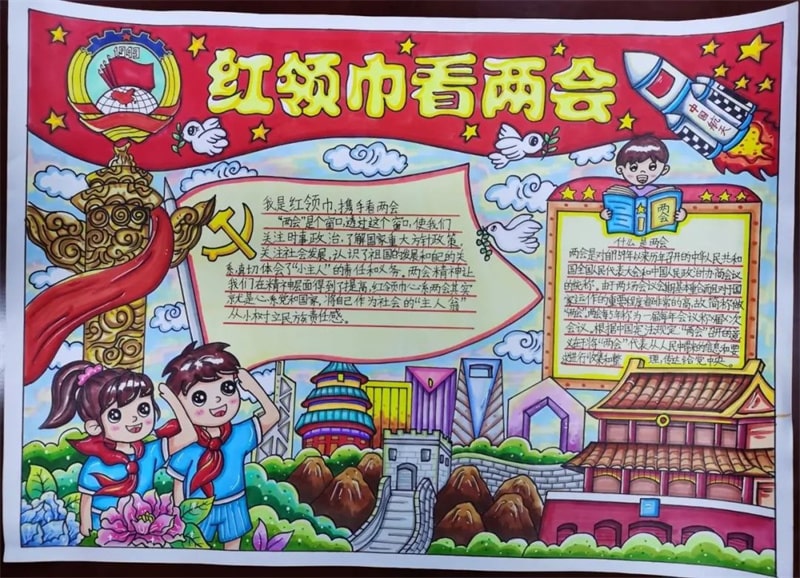 红领巾看两会
中国航天
我是红领巾,携手看两会
"两会"是个窗口,透过这个窗口,使我们
关注时事政治,了解国家重大方针政策,
关注社会发展,认识了祖国的发展和自己的关
系,真切体会了"小主人"的责任和义务。两会精神让
我们在精神层面得到了提高,红领巾心系两会其实
就是心系党和国家,将自己作为社会的"主人翁"
从小树立民族责任感。
两会
什么是两会
两会是对自1959年以来历年召开的中华人民共和
国全国人民代表大会和中国人民政治协商会议
的统称。由于两场会议会期基本重合而且对于国
家运作的重要程度都非常的高,故简称做
"两会",两会每5年称为一届,每年会议称X届X次
会议。根据中国宪法规定:"两会"召开的意
义在于将"两会"代表从人民中得来的信息和要
求进行收集和整理,传达给党中央。